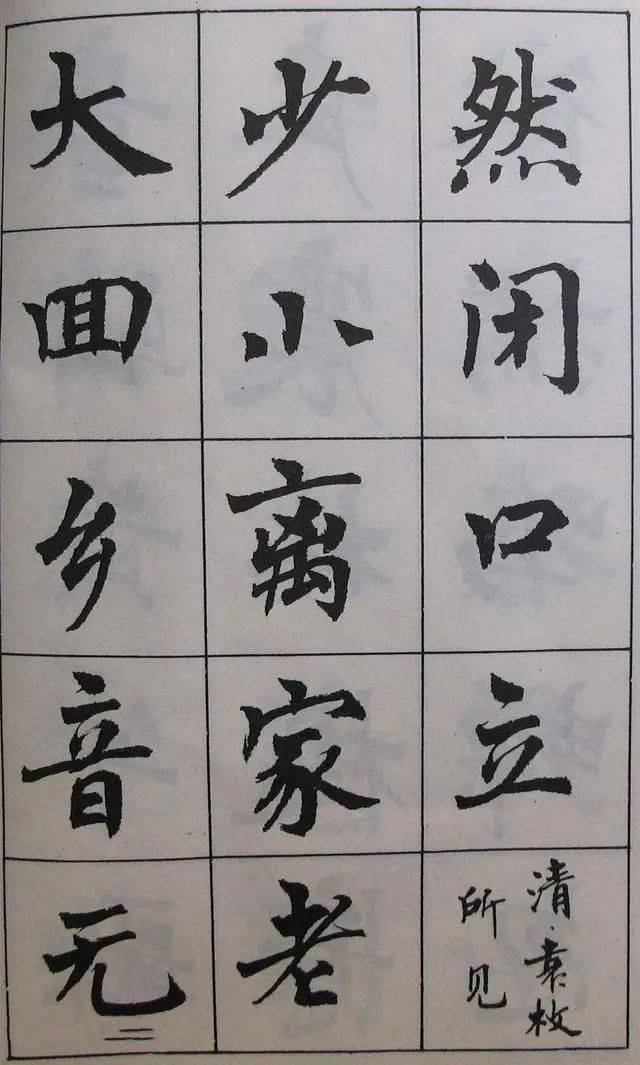 然闭口立
清·袁枚
所见
少小离家老
大回乡音无
二